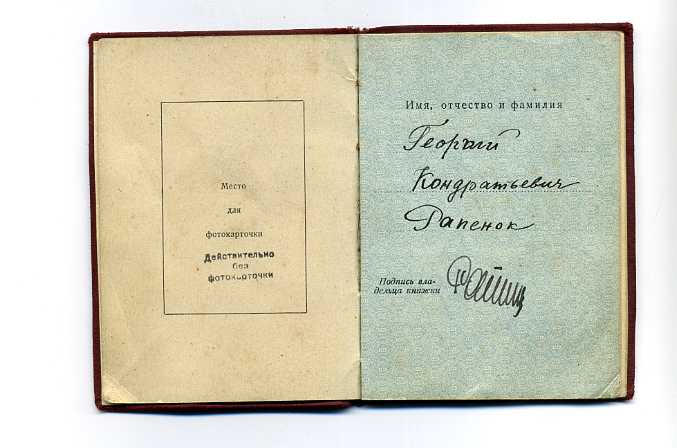 Место
для
фотокарточки
Действительно
без
фотокарточки
Имя, отчество и фамилия
Георгий
Кондратьевич
Рапенок
Подпись вла-
дельца книжки